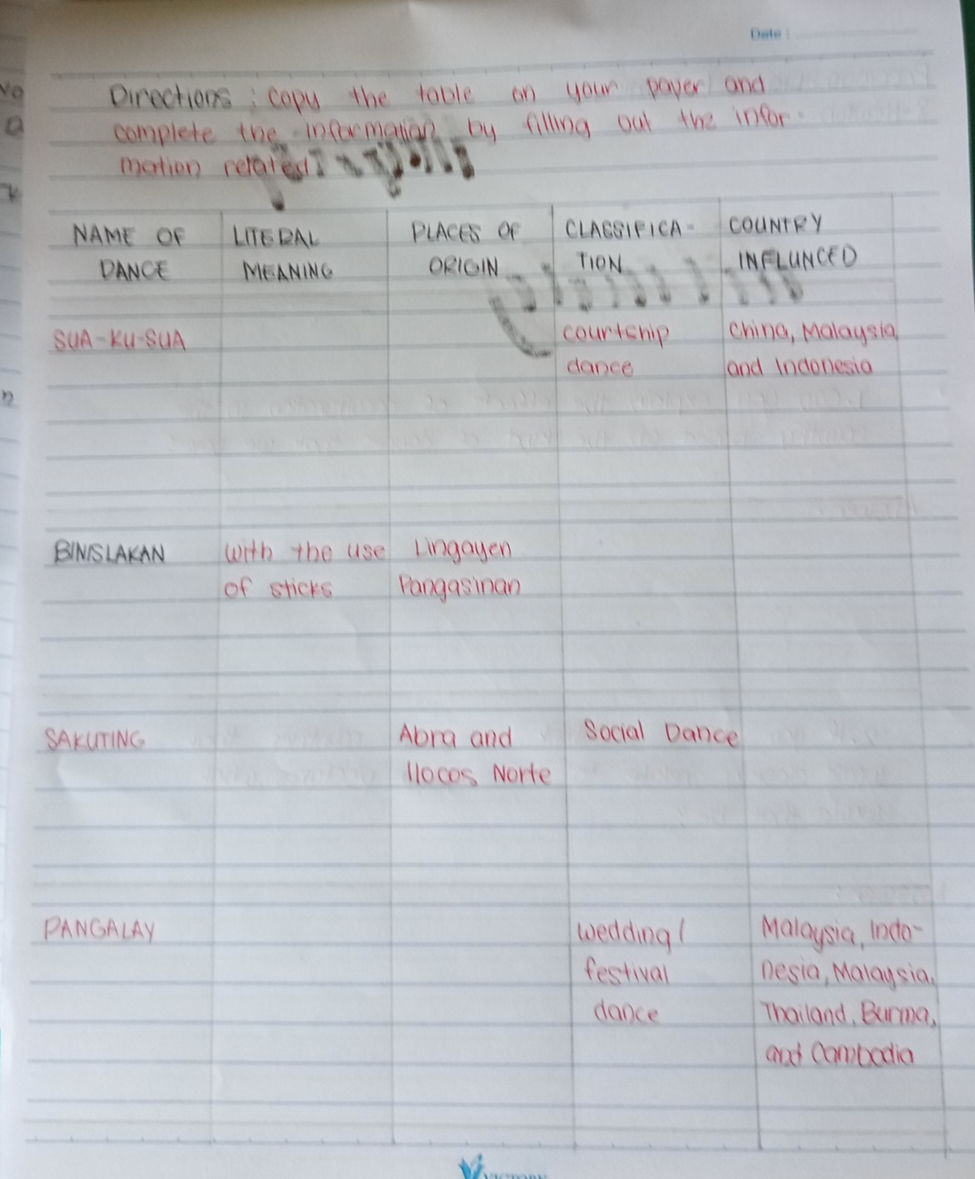 Date :
Directions : copy the table on your paper and
complete the information by filling out the infor-
mation related
NAME OF DANCE
LITERAL MEANING
PLACES OF ORIGIN
CLASSIFICA-TION
COUNTRY INFLUNCED
SUA-KU-SUA
courtship
dance
China, Malaysia
and Indonesia
BINISLAKAN
with the use
of sticks
Lingayen
Pangasinan
SAKUTING
Abra and
Ilocos Norte
Social Dance
PANGALAY
wedding/
festival
dance
Malaysia, Indo-
nesia, Malaysia,
Thailand, Burma,
and Cambodia